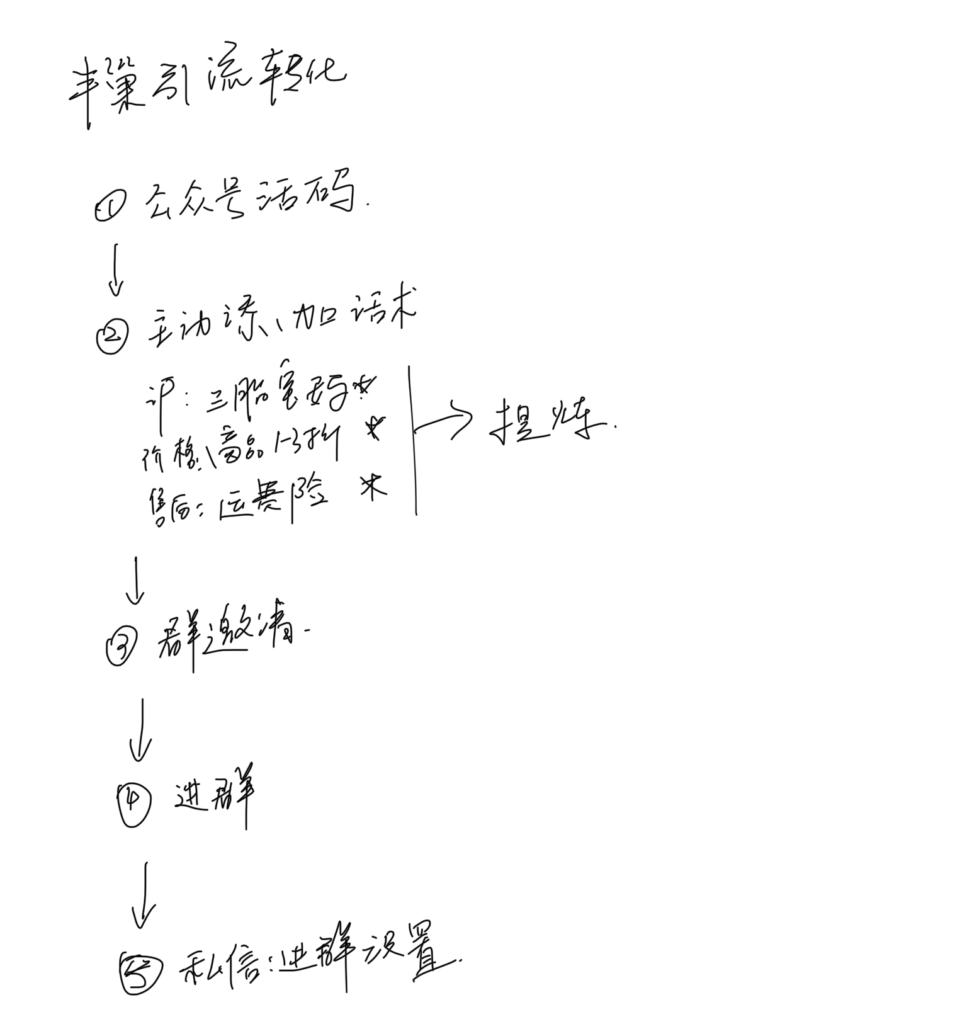 丰巢引流转化
① 公众号活码.
↓
② 主动添加话术
评: 三胎宝妈☆
价格、商品1-3折 ☆
售后: 运费险 ☆
→ 提炼.
↓
③ 群邀请.
↓
④ 进群
↓
⑤ 私信:进群设置.